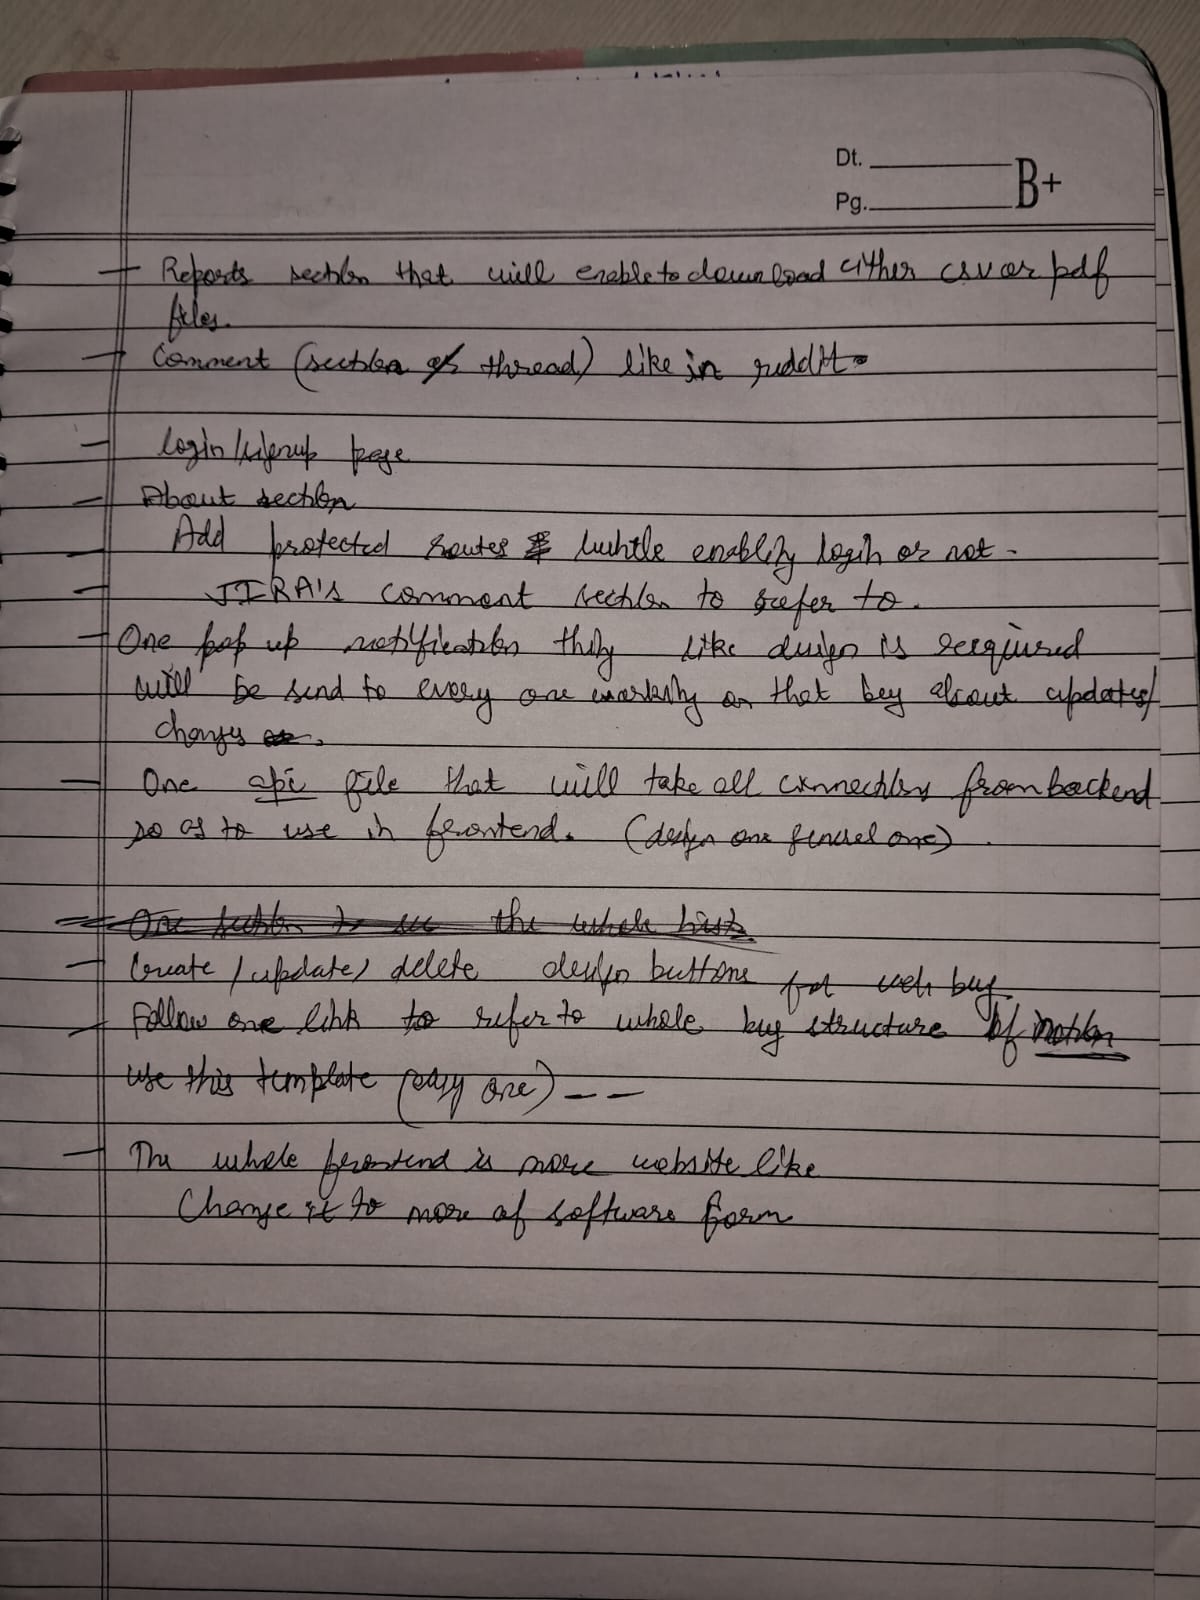 Dt.
Pg.
B+
- Reports section that will enable to download either csv or pdf
files.
- Comment (section of thread) like in reddit
- login/signup page
- About section
- Add protected routes while enabling login or not -
- JIRA's comment section to refer to.
- One pop up notification thing like design is required
will be send to every one working on that bug about updates/
changes
- One api file that will take all connections from backend
so as to use in frontend. (design one general one)
One section to see the whole
- Create / update / delete design buttons for web bug
- Follow one link to refer to whole bug structure of notion
use this template (easy one) - -
- The whole frontend is more website like
Change it to more of software form